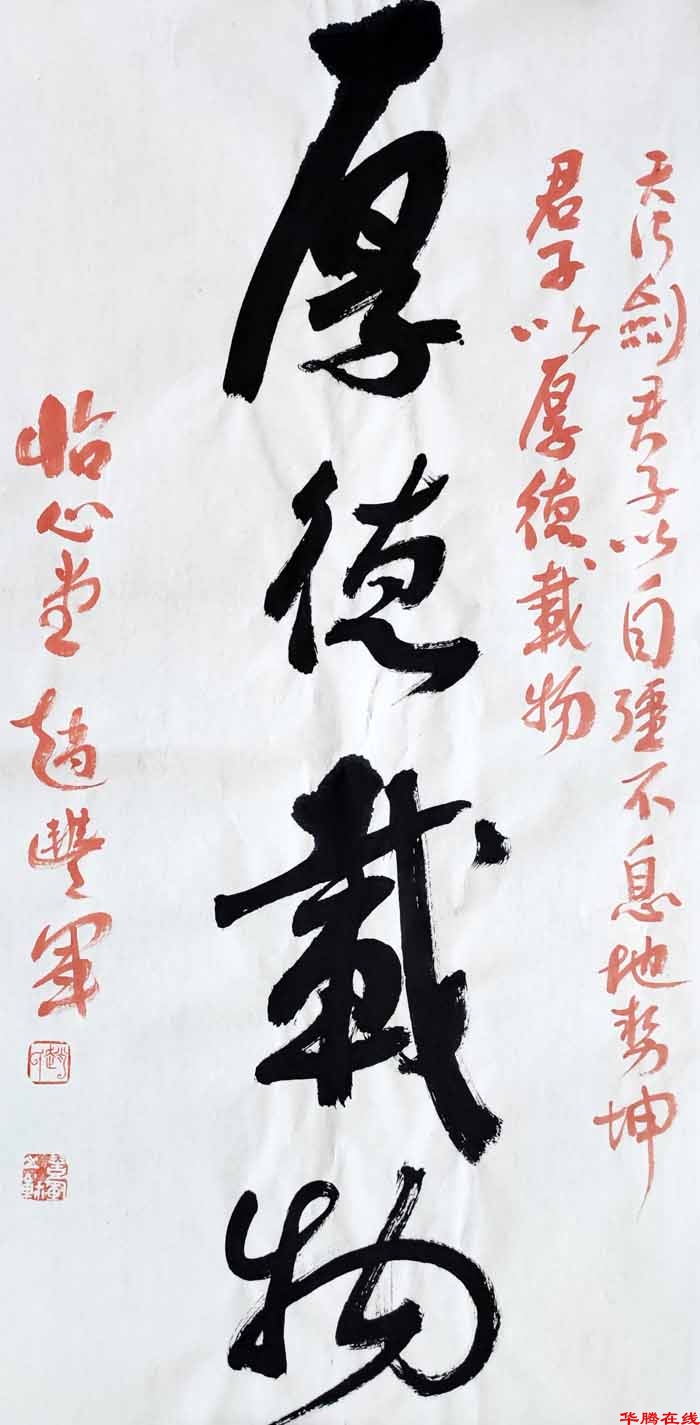 天行劍君子以自彊不息地势坤
君子以厚德載物
厚德載物
怡心堂 趙豐军
华腾在线